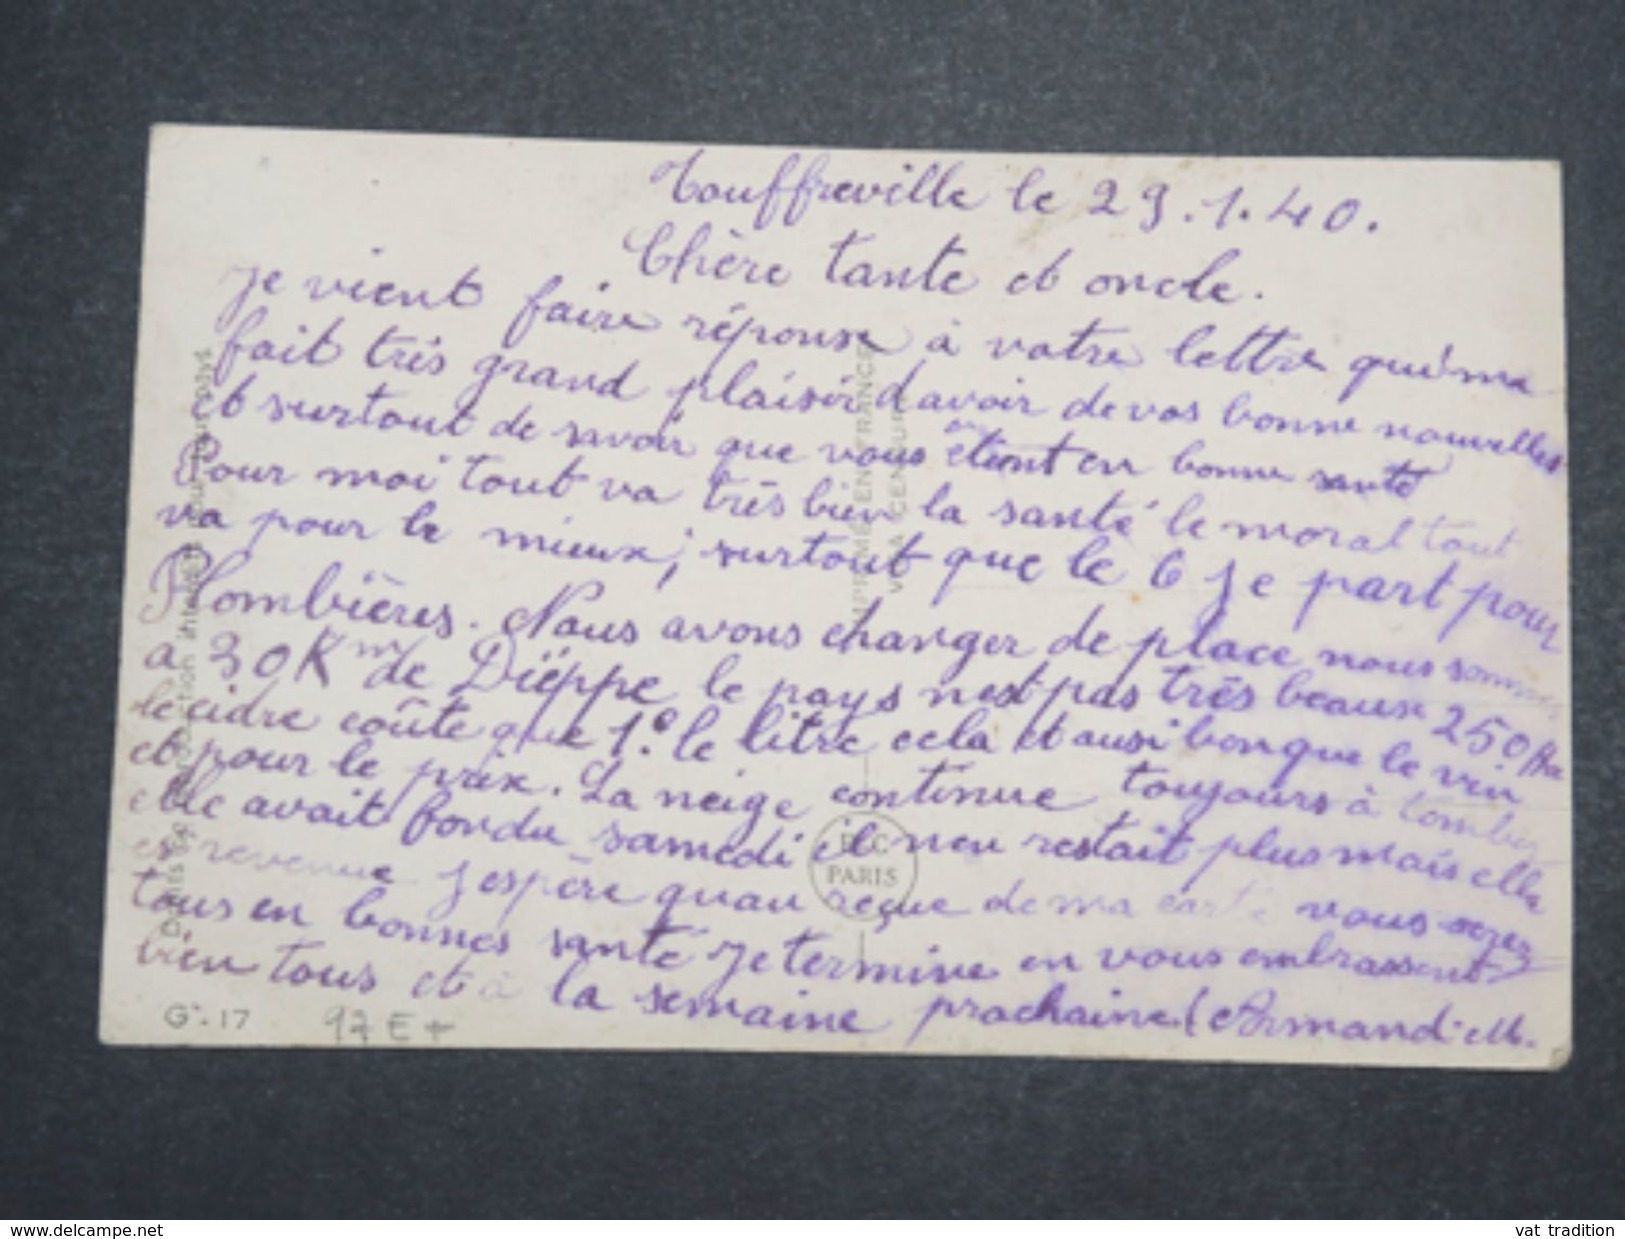 Touffreville le 29.1.40.
Chère tante et oncle.
Je vient faire réponse à votre lettre qui m'a
fait très grand plaisir d'avoir de vos bonne nouvelles
et surtout de savoir que vous étient en bonne santé
Pour moi tout va très bien la santé le moral tout
va pour le mieux, surtout que le 6 je part pour
Plombières. Nous avons changer de place nous sommes
a 30 Km de Dièppe le pays n'est pas très beaux 250 Ha
le cidre coûte que 1.e le litre cela et ausi bon que le vin
et pour le prix. La neige continue toujours à tomber
elle avait fondu samedi il neu restait plus mais elle
es revenue j'espère quau reçue de ma carte vous serez
tous en bonnes santé Je termine en vous embrassent
bien tous et à la semaine prochaine. Armand M.
G.-17
97 E +
IMPRIMÉ EN FRANCE
VISA CENSURE
PARIS
vat tradition
www.delcampe.net